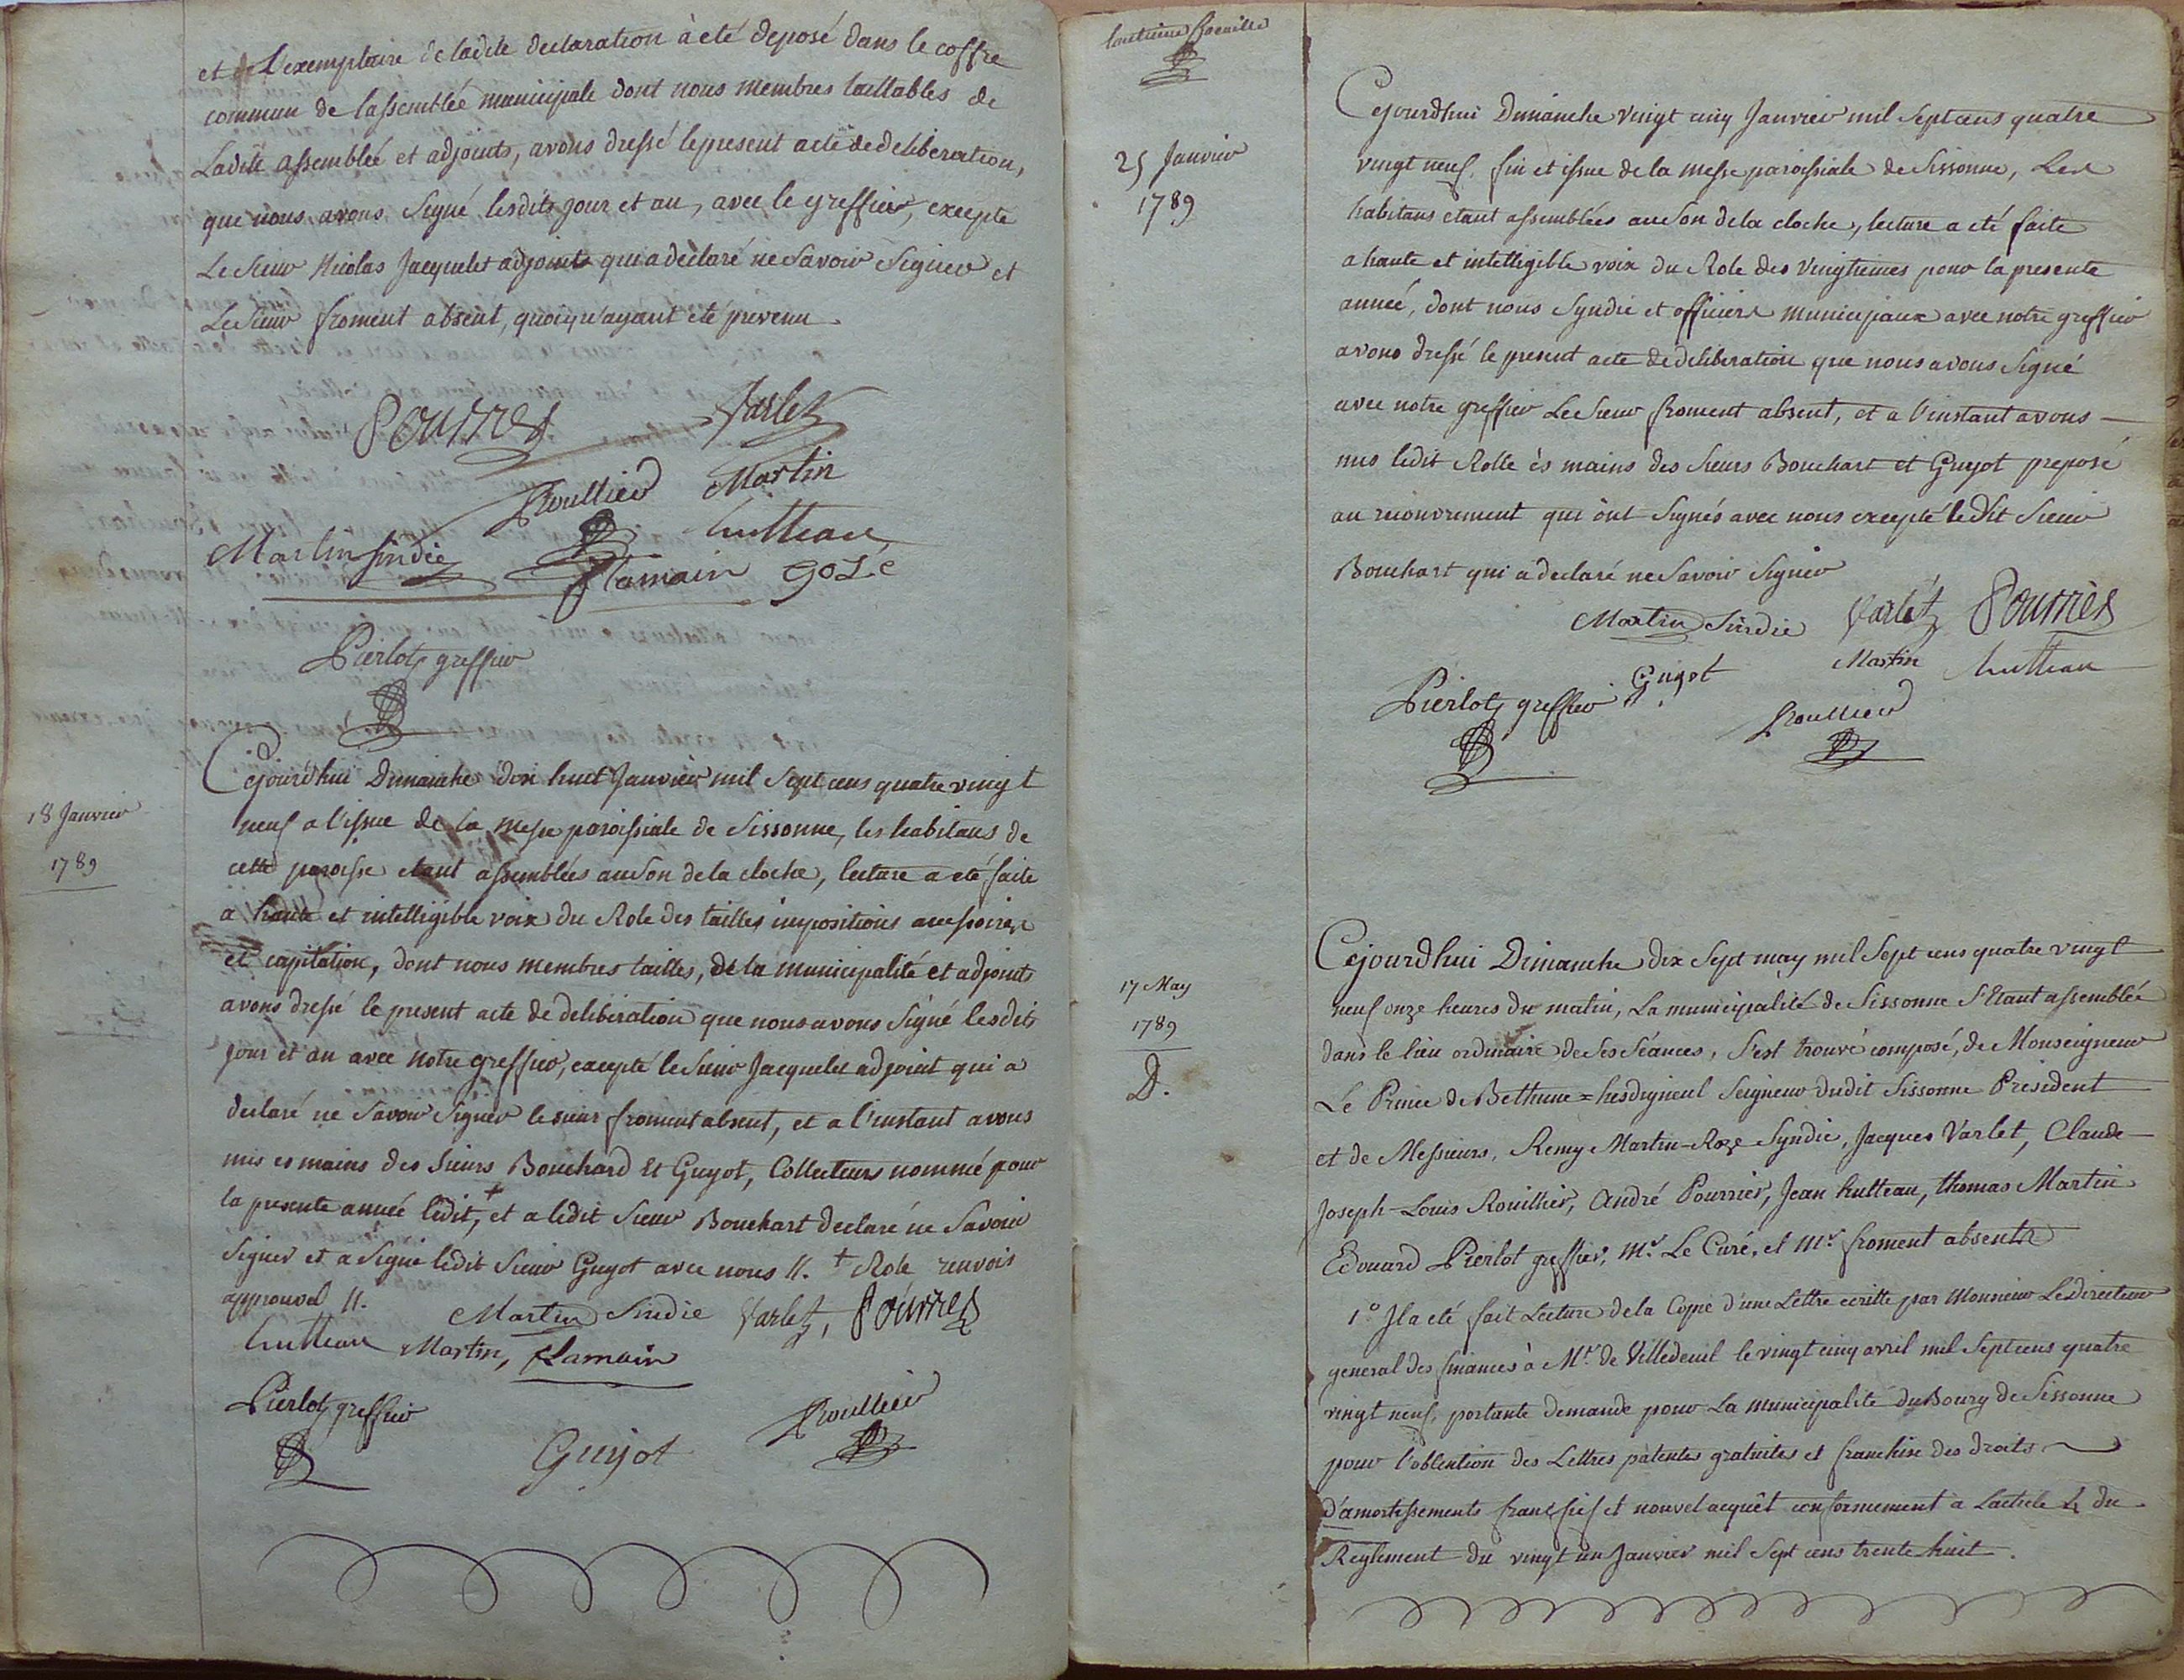 et L'exemplaire de ladite declaration à eté deposé dans le coffre
commun de lassembleé municipale dont nous membres taillables de
Ladite assembleé et adjoints, avons dressé le present acte de deliberation,
que nous avons Signé lesdits jour et an, avec le greffier, excepté
Le Sieur Nicolas Jacquelet adjoint qui a déclaré ne Savoir Signer et
Le Sieur froment absent, quoiqu'ayant eté prevenu
Pourrier Varlet
Rouillier Martin
Martin Sindic hutteau
flamain gole
Pierlot greffier
18 Janvier
1789
Cejourd'hui Dimanche dix huit Janvier mil Sept cens quatre vingt
neuf a l'issue de la messe paroissiale de Sissonne, les habitans de
cette paroisse etant assemblées au Son de la cloche, lecture a eté faite
a haute et intelligible voix du Role des tailles impositions accessoires
et capitation, dont nous membres tailles, de la municipalité et adjoints
avons dressé le present acte de deliberation que nous avons Signé lesdits
jour et an avec notre greffier, excepté le Sieur Jacquelet adjoint qui a
declaré ne Savoir Signer le sieur froment absent, et a l'instant avons
mis es mains des Sieurs Bouchard et Guyot, Collecteurs nommé pour
la presente année ledit, + et a ledit Sieur Bouchart declaré ne Savoir
Signer et a Signé ledit Sieur Guyot avec nous //. + Role renvois
approuvel //.
Martin Sindic Varlet, Pourrier
hutteau Martin, flamain
Pierlot greffier
Guyot
Rouillier
25 Janvier
1789
Cejourdhui Dimanche vingt cinq Janvier mil Sept cens quatre
vingt neuf, fin et issue de la messe paroissiale de Sissonne, Les
habitans etant assemblées au Son de la cloche, lecture a eté faite
a haute et intelligible voix du Role des Vingtiemes pour la presente
année, dont nous Syndic et officiers municipaux avec notre greffier
avons dressé le present acte de deliberation que nous avons Signé
avec notre greffier Le Sieur froment absent, et a l'instant avons
mis ledit Rolle ès mains des Sieurs Bouchart et Guyot preposé
au recouvrement qui ont Signés avec nous excepté le dit Sieur
Bouchart qui a declaré ne Savoir Signer
Martin Sindic Varlet Pourrier
Guyot Martin hutteau
Pierlot greffier
Rouillier
17 May
1789
D.
Cejourdhui Dimanche dix Sept may mil Sept cens quatre vingt
neuf onze heures du matin, La municipalité de Sissonne S'Etant assemblée
dans le lieu ordinaire de Ses Séances, S'est trouvé composé, de Monseigneur
Le Prince de Bethune = hesdigneul Seigneur dudit Sissonne President
et de Messieurs, Remy Martin-Roze Syndic, Jacques Varlet, Claude
Joseph-Louis Rouillier, André Pourrier, Jean hutteau, thomas Martin
Edouard Pierlot greffier, Mr. Le Curé, et Mr. froment absents
1° Il a eté fait Lecture de la Copie d'une Lettre ecritte par Monsieur Le Directeur
general des finances à Mr. de Villedeuil le vingt cinq avril mil Sept cens quatre
vingt neuf, portante demande pour La municipalité du Bourg de Sissonne
pour l'obtention des Lettres patentes gratuites et franchise des droits
d'amortissements franc fief et nouvel acquêt conformement à Larticle 4 du
Reglement du vingt un Janvier mil Sept cens trente huit.